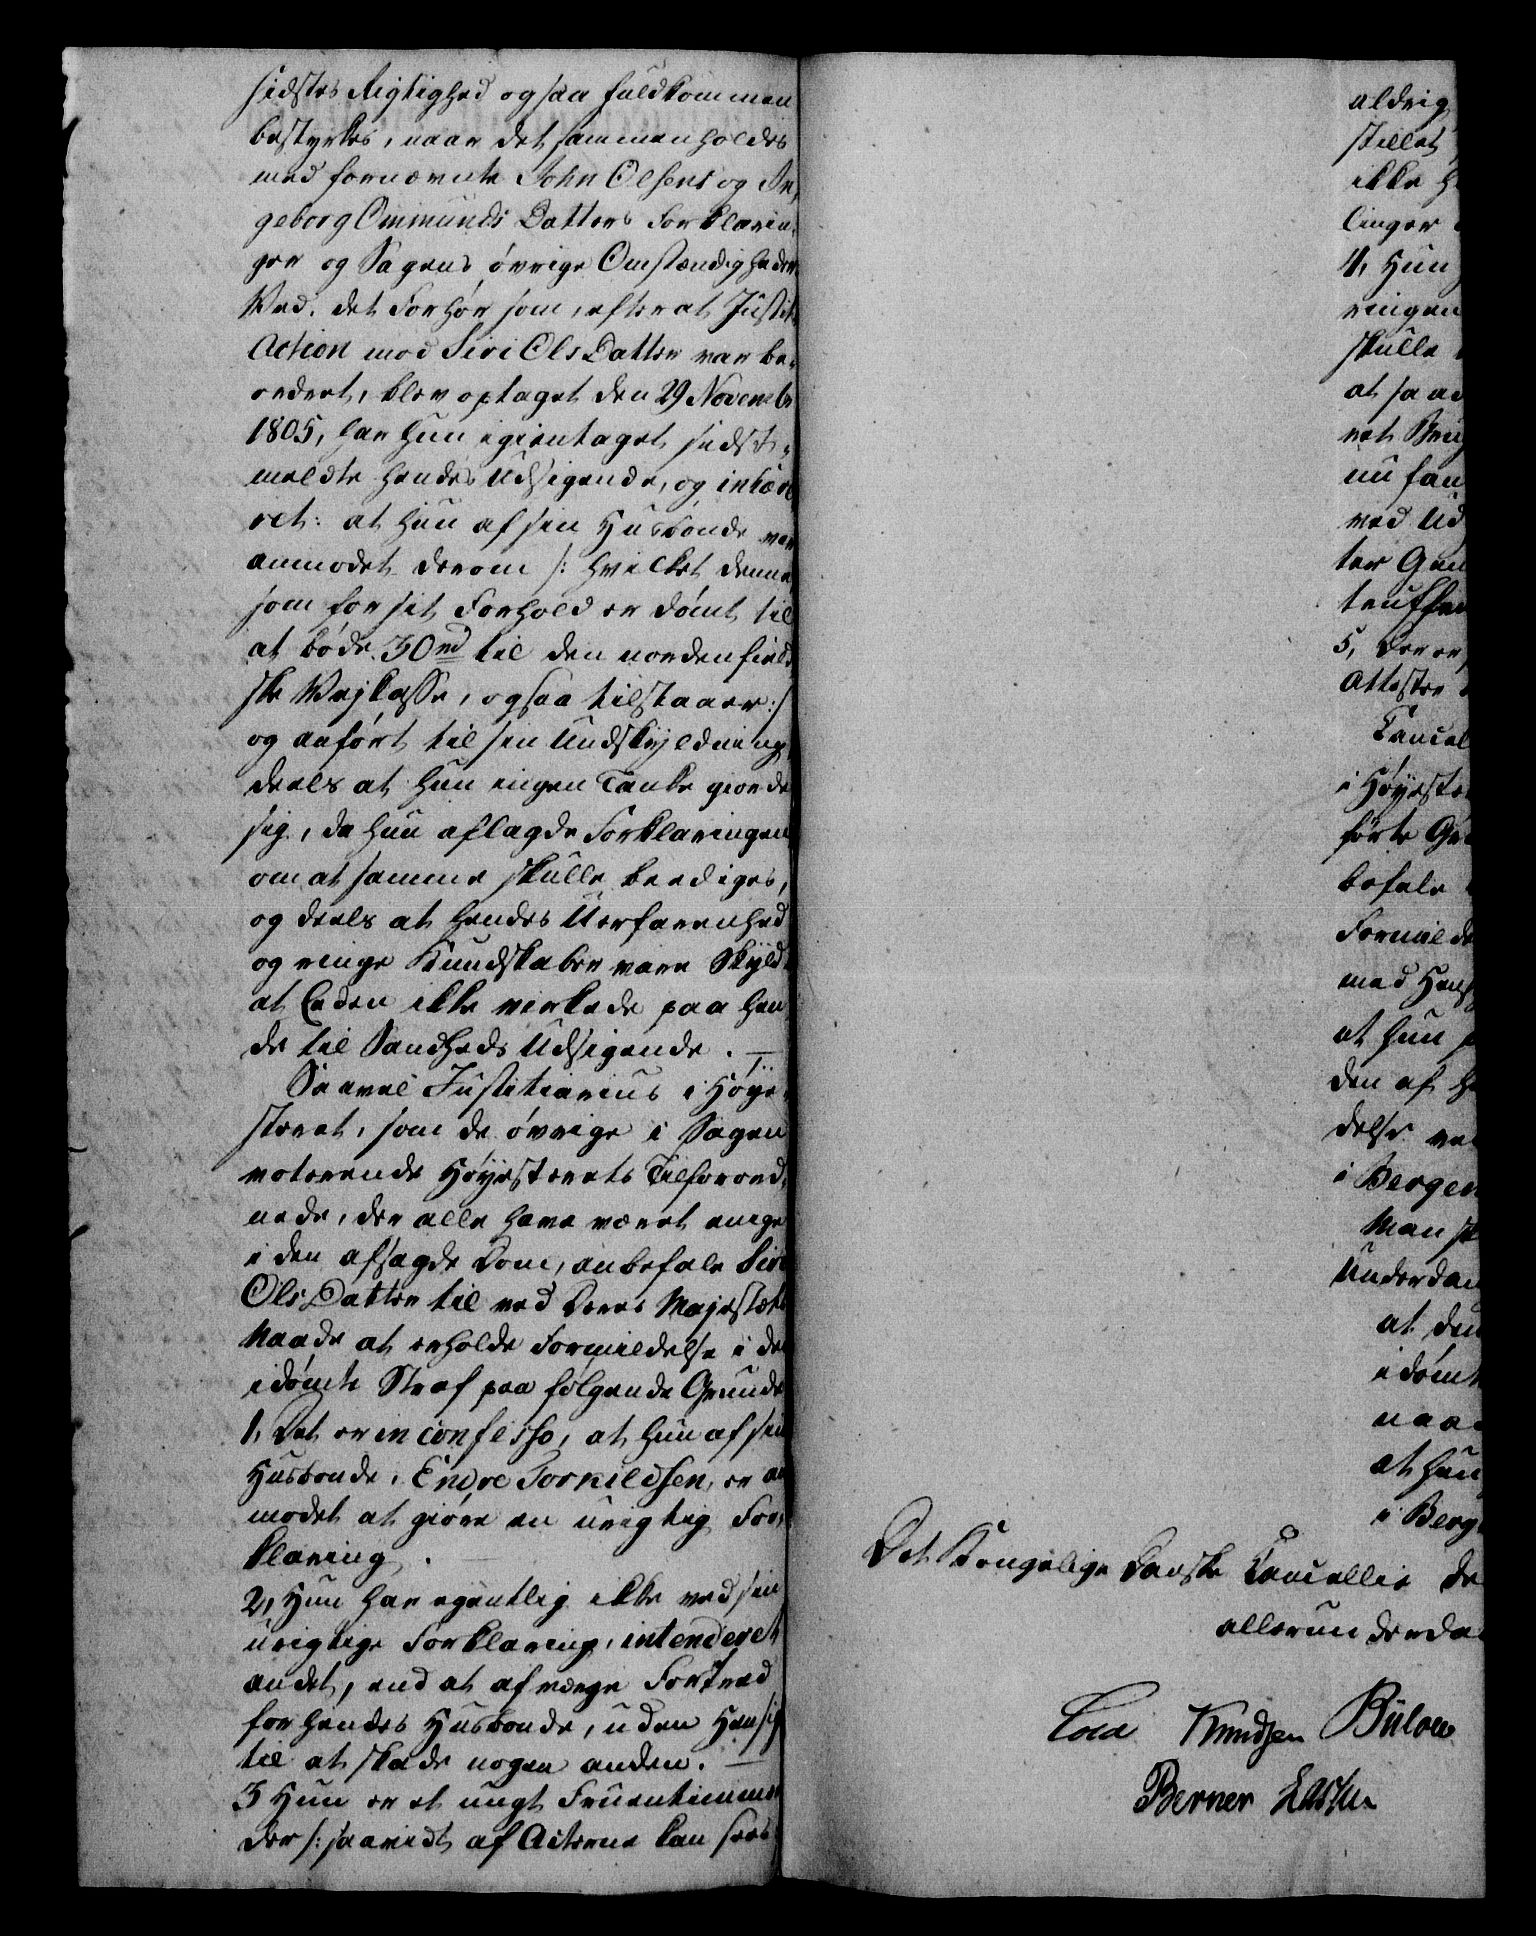 sidstes Rigtighed ogsaa fuldkommen
bestyrkes, naar det sammenholdes
med fornævnte John Olsens og In,
geborg Ommunds Datters Forklarin,
ger og Sagens øvrige Omstændigheder
Ved det Forhør som, efter at Justits
Action mod Siri Ols Datter var be,
ordret, blev optaget den 29 Novembr
1805, har hun igientaget sidst,
meldte hendes Udsigende, og inhære
ret: at hun af sin Husbonde var
anmodet derom /: hvilket denne
som for sit Forhold er dømt til
at bøde 30 rd til den nordenfield
ske Vejkasse, ogsaa tilstaaer :/
og anført til sin Undskyldning
deels at hun ingen Tanke giorde
sig, da hun aflagde Forklaringen
om at samme skulle beediges,
og deels at hendes Uerfarenhed
og ringe Kundskaber vare Skyld
at Eeden ikke virkede paa hen
de til Sandheds Udsigende. —
Saavel Justitiarius i Høye,
steret, som de øvrige i Sagen
voterende Høyesterets Tilforord,
nede, der alle have været enige
i den afsagde Dom, anbefale Siri
Ols Datter til ved Deres Majestæts
Naade at erholde Formildelse i den
idømte Straf paa følgende Grunde
1, Det er in confesso, at hun af sin
Husbonde, Endre Torkildsen, er an
modet at giøre en urigtig For,
klaring. —
2, Hun har egentlig ikke ved sin
urigtige Forklaring, intenderet
andet, end at afværge Fortred
for hendes Husbonde, uden Hensigt
til at skade nogen anden. —
3 Hun er et ungt Fruentimmer
der /: saavidt af Acterne kan sees
aldrig
stillet
ikke h
linger
4, Hun
ringen
skulle
at saa
ret Bru
nu fan
ved Ud
ter Gen
truffen
5, Der er
Attester
Cancel
i Høyester
førte Gru
befale
Formilde
med Hens
at hun
den af H
delse ve
i Bergen
Man sk
Underdan
at den
idømt
naa
at hun
i Berg
Det Kongelige Danske Cancellie de
allerunderda
Knudsen Bülow
Berner Lassen